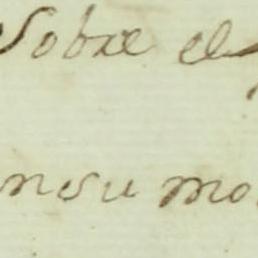 Sobre el
en su mo